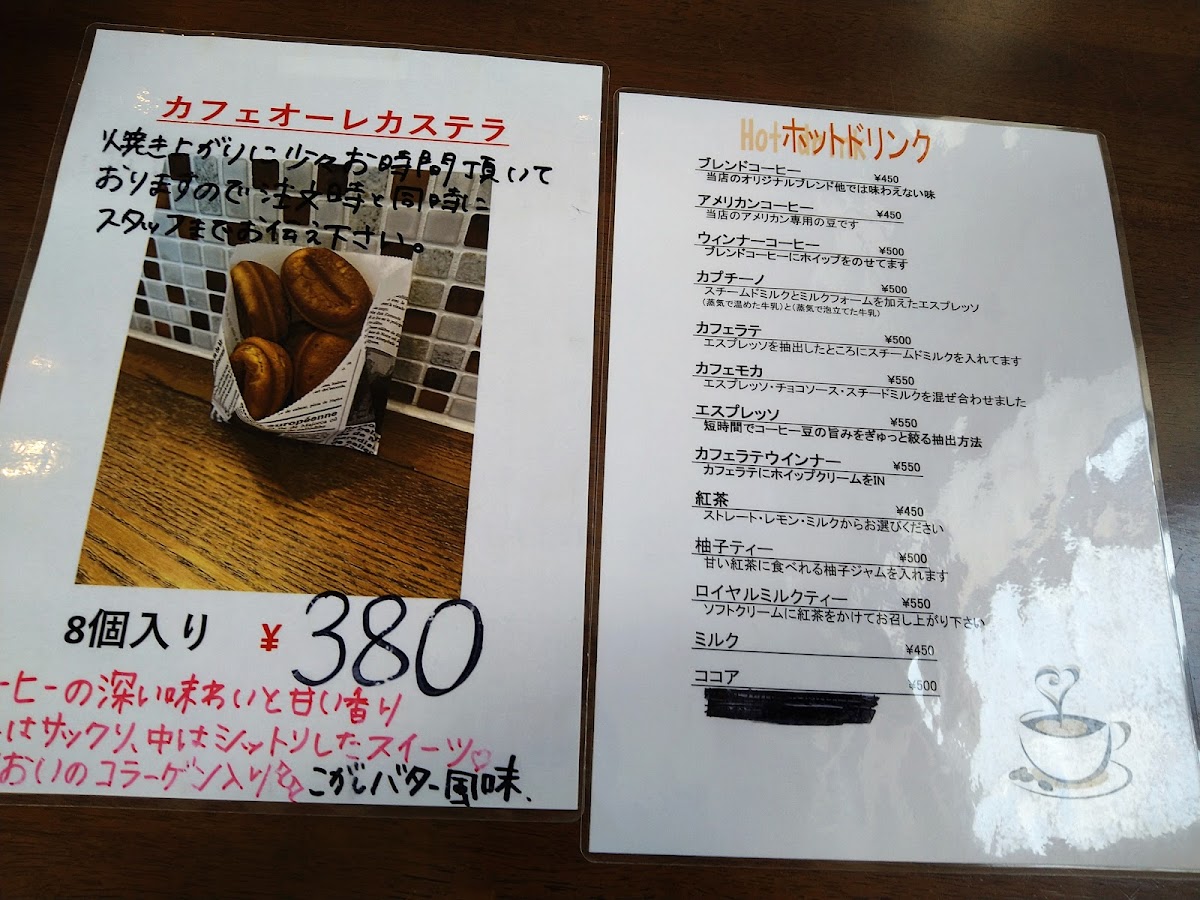 カフェオーレカステラ
焼き上がりに少々お時間頂いて
おりますので注文時と同時に
スタッフまでお伝え下さい。
européenne
8個入り ¥380
ーヒーの深い味わいと甘い香り
はサックリ、中はシットリしたスイーツ♡
おいのコラーゲン入り こがしバター風味、
Hot ホットドリンク
ブレンドコーヒー ¥450
当店のオリジナルブレンド他では味わえない味
アメリカンコーヒー ¥450
当店のアメリカン専用の豆です
ウィンナーコーヒー ¥500
ブレンドコーヒーにホイップをのせてます
カプチーノ ¥500
スチームドミルクとミルクフォームを加えたエスプレッソ
(蒸気で温めた牛乳)と(蒸気で泡立てた牛乳)
カフェラテ ¥500
エスプレッソを抽出したところにスチームドミルクを入れてます
カフェモカ ¥550
エスプレッソ・チョコソース・スチードミルクを混ぜ合わせました
エスプレッソ ¥550
短時間でコーヒー豆の旨みをぎゅっと絞る抽出方法
カフェラテウインナー ¥550
カフェラテにホイップクリームをIN
紅茶 ¥450
ストレート・レモン・ミルクからお選びください
柚子ティー ¥500
甘い紅茶に食べれる柚子ジャムを入れます
ロイヤルミルクティー ¥550
ソフトクリームに紅茶をかけてお召し上がり下さい
ミルク ¥450
ココア ¥500